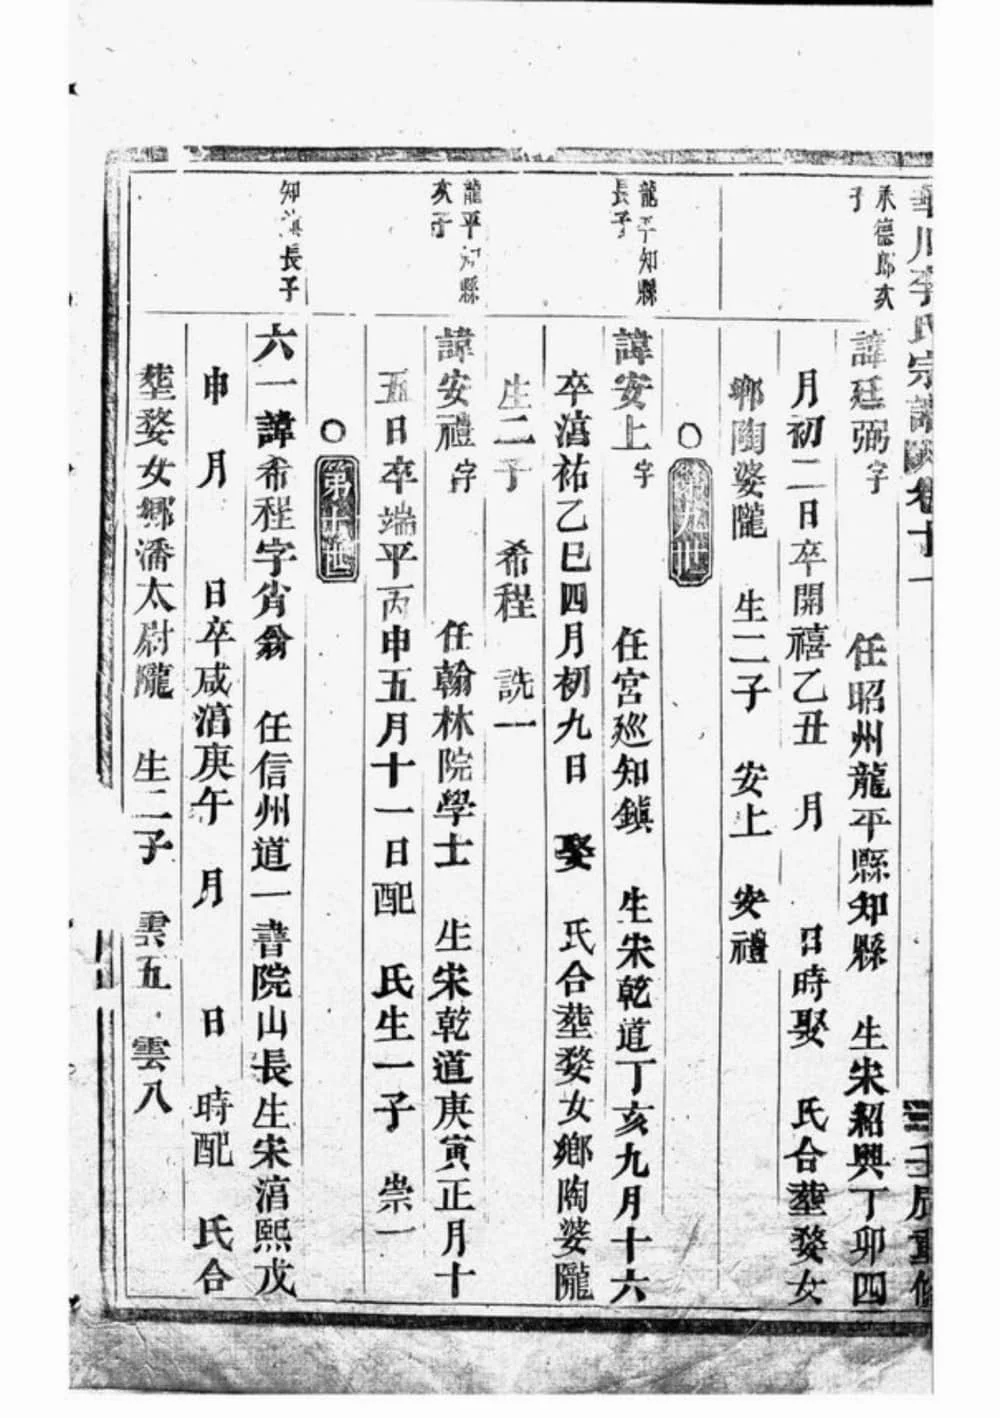 華川李氏宗譜 卷十一 三 壬辰重修
承德郎次
子
諱廷弼字 任昭州龍平縣知縣 生宋紹興丁卯四
月初二日卒開禧乙丑 月 日時娶 氏合塟婺女
鄉陶婆隴 生二子 安上 安禮
○第九世
龍平知縣
長子
諱安上字 任宮巡知鎮 生宋乾道丁亥九月十六
卒湻祐乙巳四月初九日 娶 氏合塟婺女鄉陶婆隴
生二子 希程 詵一
龍平知縣
次子
諱安禮字 任翰林院學士 生宋乾道庚寅正月十
五日卒端平丙申五月十一日配 氏生一子 崇一
○第十世
知鎮長子
六一諱希程字㑭翁 任信州道一書院山長生宋湻熙戊
申 月 日卒咸湻庚午 月 日 時配 氏合
塟婺女鄉潘太尉隴 生二子 雲五 雲八